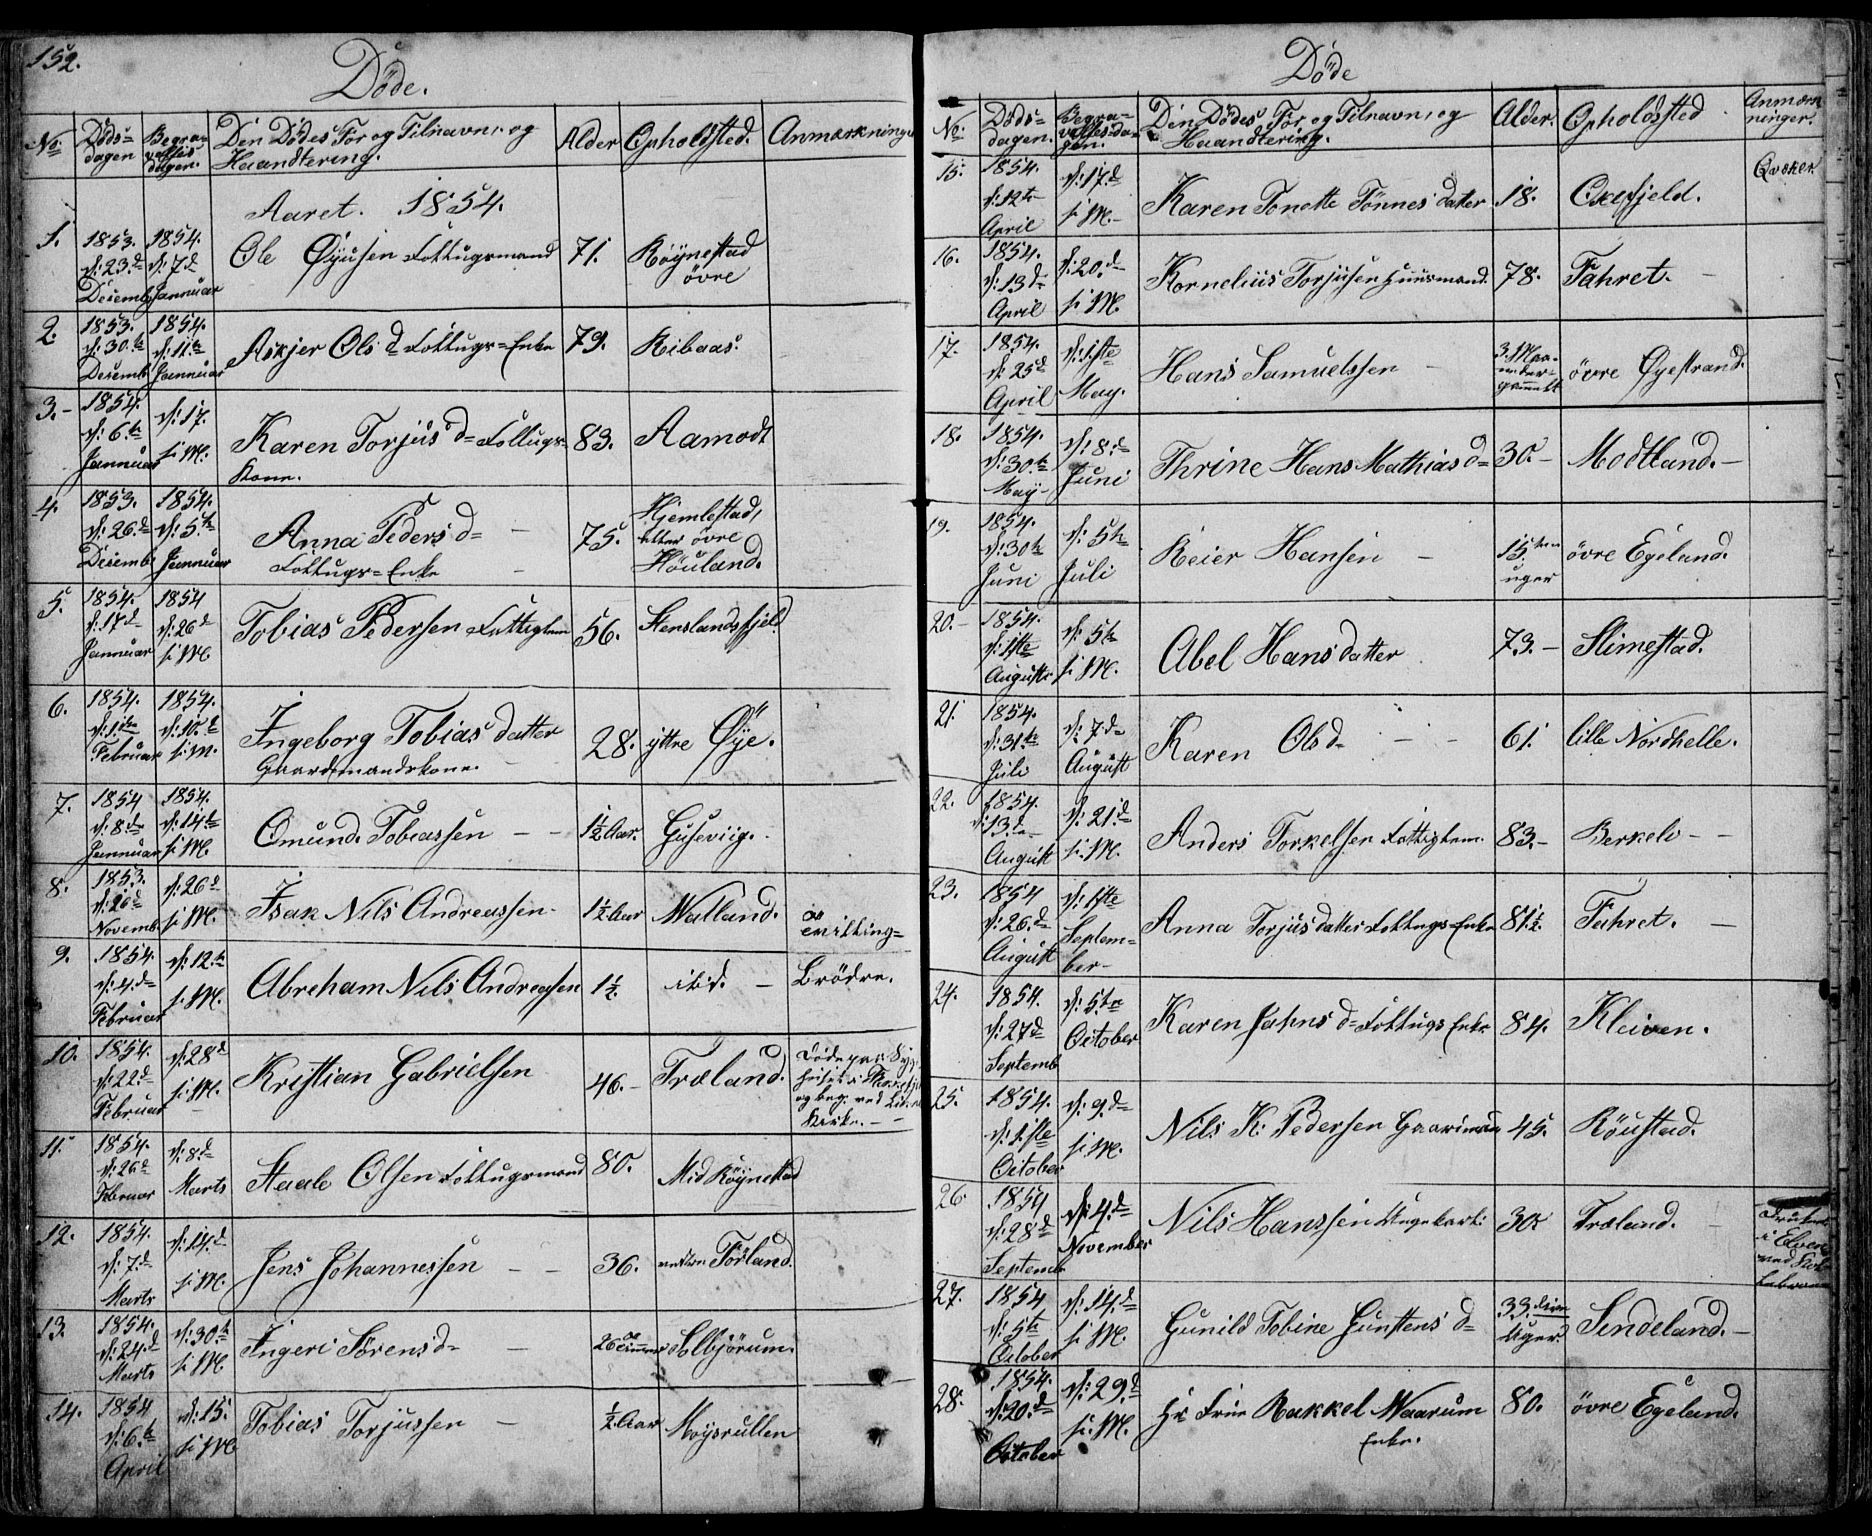 152.
Döde.
No: Döds-dagen Begravelsesdagen. Den Dödes For og Tilnavn, og Haandtering. Alder Opholdssted. Anmærkninger
Aaret. 1854.
1. 1853. d: 23.d Decemb. 1854. d: 7d Jannuar Ole Öyusen Fottugsmand 71. Röynestad övre
2. 1853. d: 30.te Decemb. 1854. d: 11.te Jannuar Askjer Ols d= Fottugs=Enke 79. Ribaas.
3.- 1854. d: 6.te Jannuar d: 17. s: M. Karen Torjus d= Fottugs=Kone. 83. Aamodt
4. 1853. d: 26.d Decemb. 1854. d: 5te Jannuar Anna Peders d= Fottugs=Enke 75. Hjemlestad, eller övre Höuland.
5. 1854. d: 17d Jannuar 1854 d: 26d s: M. Tobias Pedersen Fattiglem 56. Stenslandsfjeld
6. 1854. d: 1.te Februar 1854. d: 10.d s: M. Ingeborg Tobias datter Gaardmandskone. 28. yttre Öye.
7. 1854 d: 8.d Jannuar 1854. d: 14.te s: M. Omund. Tobiassen - - 1½ Aar. Guseviig.
8. 1853. d: 20d Novemb. d: 26d s: M. Isak Nils Andreassen 1½ Aar Watland. Tvilling=
9. 1854. d: 4.d Februar d: 12.te s: M. Abreham Nils Andreasen 1½. ibid. - Brödre.
10. 1854. d: 22.d Februar d: 28d s: M. Kristian Gabrielsen 46.- Træland. Döde paa Syg og beg. ved Kirke. - -
11. 1854. d: 26d Februar d: 8.d Marts Staale Olsen Fottugsmand 80. Mid Röynestad
12. 1854. d: 7.d Marts d: 14.d s: M. Jens Johannessen - - 36. nedre Förland.
13. 1854. d: 24.d Marts d: 30.te s: M. Ingeri Sörens d= - 26 Solbjörum.
14. 1854 d: 6.te April d: 15. s: M Tobias Torjussen - ½ Aar Möysrullen
Döde
No: Dödsdagen. Begravelsesdagen. Den Dödes For og Tilnavn, og Haandtering. Alder. Opholdssted Anmærkninger.
15. 1854. d: 12te April d: 17.d s: M.- Karen Tonette Tönnes datter 18. Oxefjeld. Qvæker
16. 1854. d: 13d April d: 20.d s: M. Kornelius Torjusen Huusmand. 78. Fahret. -
17. 1854. d: 25d April d: 1ste May. Hans Samuelssen - 3. Maaneder gammelt övre Öyestrand.
18. 1854. d: 30.te May - d: 8.d Juni Thrine Hans Mathias d= 30.- Modtland.-
19. 1854. d: 30te Juni d: 5te Juli Reier Hansen - 15 ten uger övre Egeland.
20.- 1854. d: 1ste Auguste d: 5te s: M. Abel Hans datter 73.- Slimestad.
21. 1854. d: 31.te Juli d: 7d August Karen Ols d= - - 61. lille Nordhelle.
22. 1854. d: 13.d August d: 21.d s: M. Anders Torkelsen Fattiglem. 83.- Berkeli - -
23. 1854 d: 26.d August d: 1ste September- Anna Torjus datter Fottugs=Enke 81½. Fahret. -
24. 1854. d: 27d Septemb d: 5te October Karen Jahns d= Fottugs Enke 84. Kleiven.
25. 1854. d: 1.ste October d: 9.d s: M. Nils K. Pedersen Gaardmand 45. Röustad.
26. 1854 d: 28d Septemb d: 4.d November Nils Hanssen Ungekarl: 30. Træland. - Druknet i Elven ved
27. 1854 d: 5te October d: 14.d s: M. Gunild Tobine Gunstens d= 33 uger Sindeland.-
28. 1854. d: 20.d October d: 29.d s: M. Hr Frue Rakkel Waarum Enke. 80. övre Egeland.